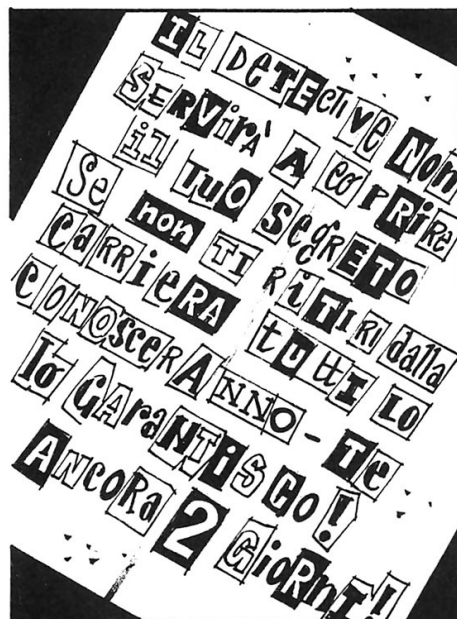 IL DeTEcTiVe NoN
SERViRA' A coPRiRe
il TuO SeGRETO
Se non TI RiTIRi dalla
CaRRIeRA tuttI LO
CONOSceRANNO - Te
lo GAraNTiSCO!
ANcoRa 2 GioRnI!